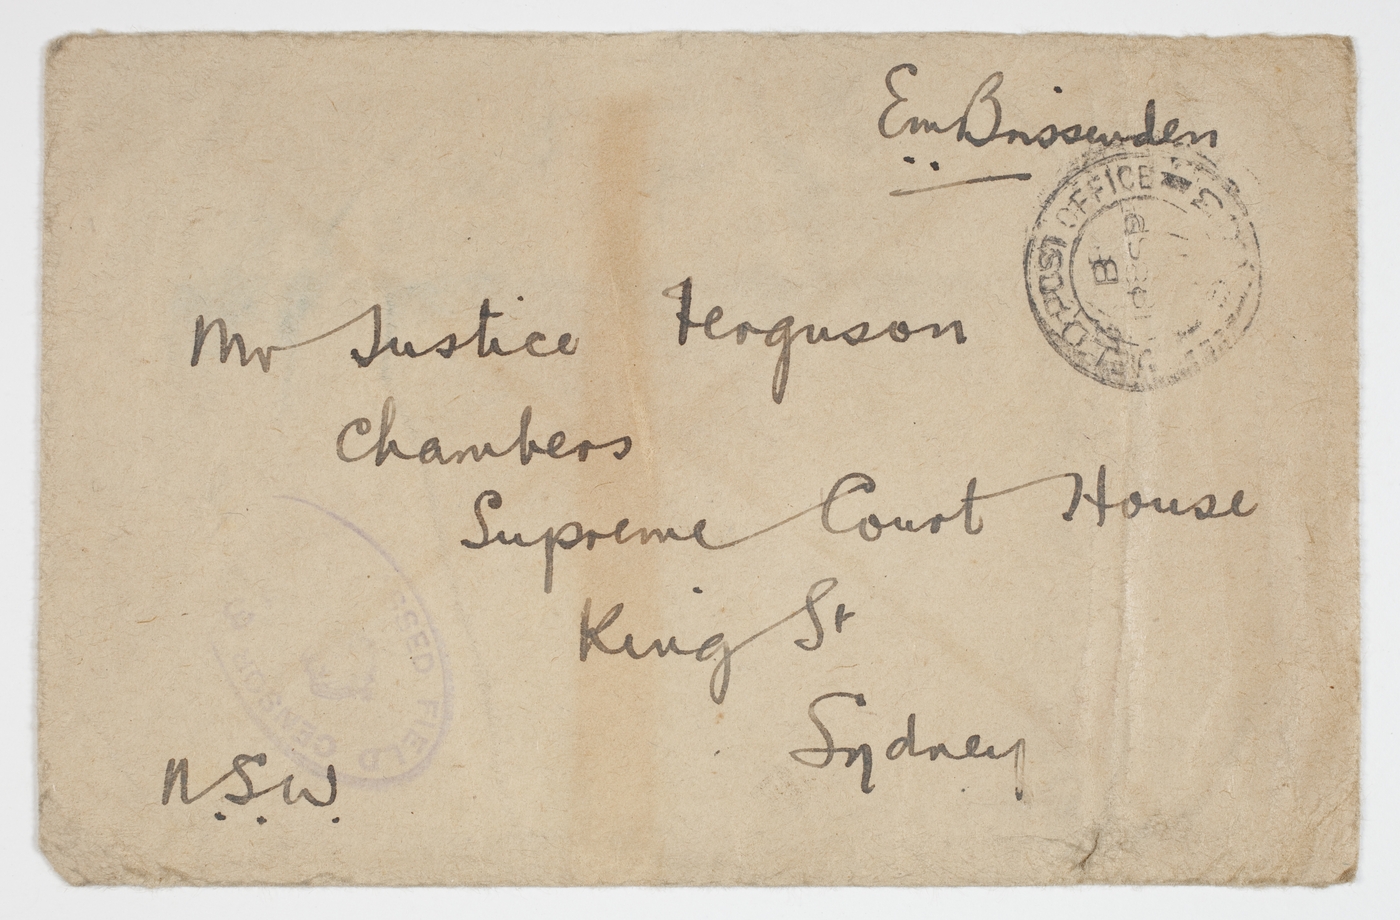 Em Brissenden
FIELD POST OFFICE
B
Mr Justice Ferguson
Chambers
Supreme Court House
King St
Sydney
N.S.W.
FIELD CENSOR